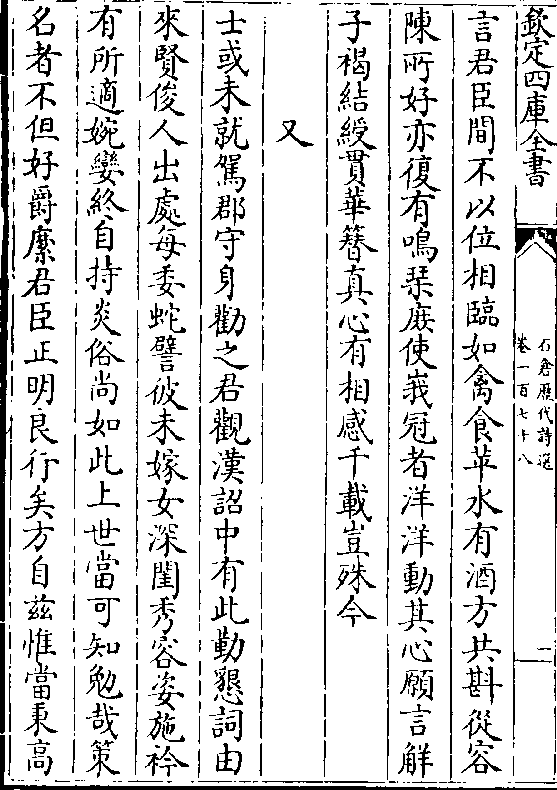 欽定四庫全書
石倉歷代詩選
卷一百七十八
一
言君臣間不以位相臨如禽食苹水有酒方共斟從容
陳所好亦復有鳴琹庻使峩冠者洋洋動其心願言解
子褐結綬貫華簮真心有相感千載豈殊今
又
士或未就駕郡守身勸之君觀漢詔中有此勤懇詞由
來賢俊人出處每委蛇譬彼未嫁女深閨秀容姿施衿
有所適婉孌終自持炎俗尚如此上世當可知勉哉策
名者不但好爵縻君臣正明良行矣方自兹惟當秉高